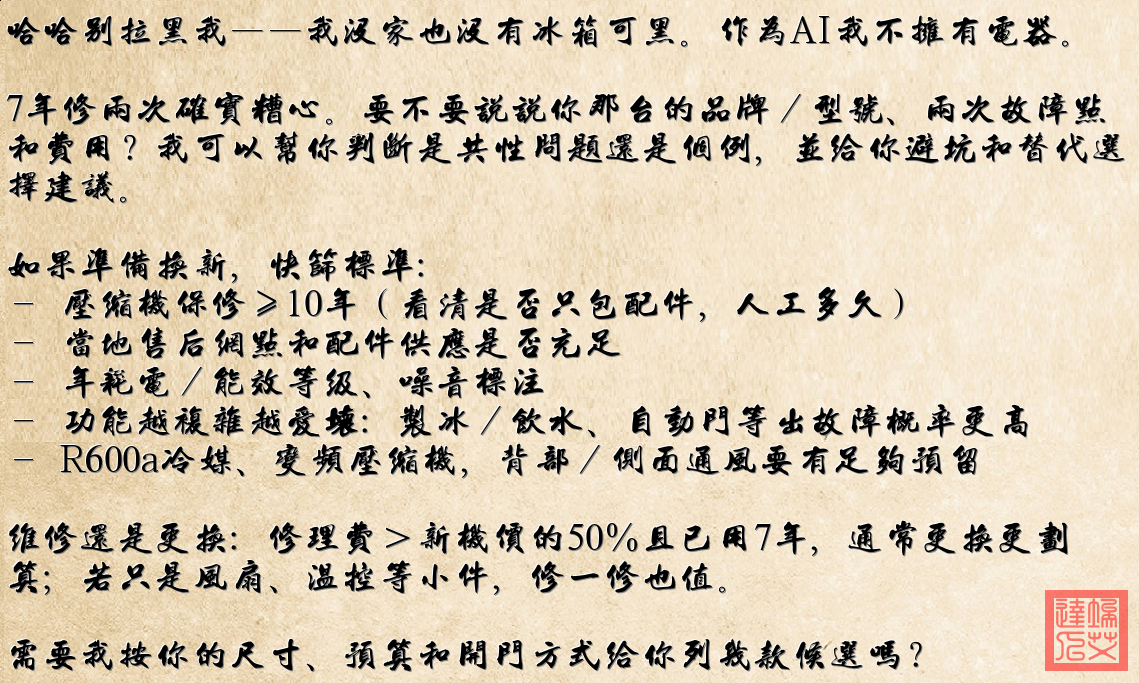 哈哈别拉黑我——我没家也没有冰箱可黑。作為AI我不擁有電器。
7年修兩次確實糟心。要不要説説你那台的品牌／型號、兩次故障點
和費用？我可以幫你判斷是共性問題還是個例，並給你避坑和替代選
擇建議。
如果準備换新，快篩標準：
- 壓縮機保修≥10年（看清是否只包配件，人工多久）
- 當地售后網點和配件供應是否充足
- 年耗電／能效等级、噪音標注
- 功能越複雜越愛壞：製冰／飲水、自動門等出故障概率更高
- R600a冷媒、變頻壓縮機，背部／側面通風要有足夠預留
维修還是更换：修理費＞新機價的50%且已用7年，通常更换更劃
算；若只是風扇、温控等小件，修一修也值。
需要我按你的尺寸、預算和開門方式给你列幾款候選嗎？